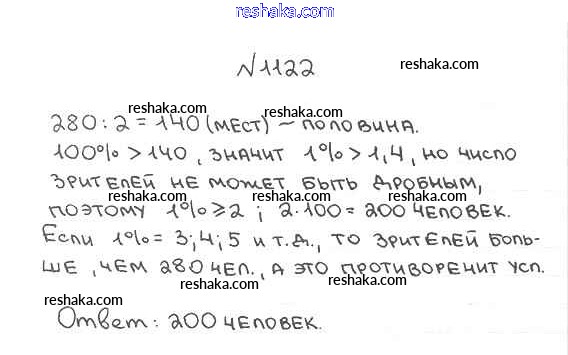 reshaka.com
№1122
reshaka.com
reshaka.com
reshaka.com
280:2=140 (мест) – половина.
reshaka.com
100% > 140, значит 1% > 1,4, но число
зрителей не может быть дробным,
reshaka.com
reshaka.com
поэтому 1% ≥ 2; 2·100 = 200 человек.
Если 1% = 3; 4; 5 и т.д., то зрителей боль-
reshaka.com
reshaka.com
ше, чем 280 чел., а это противоречит усл.
reshaka.com
reshaka.com
Ответ: 200 человек.